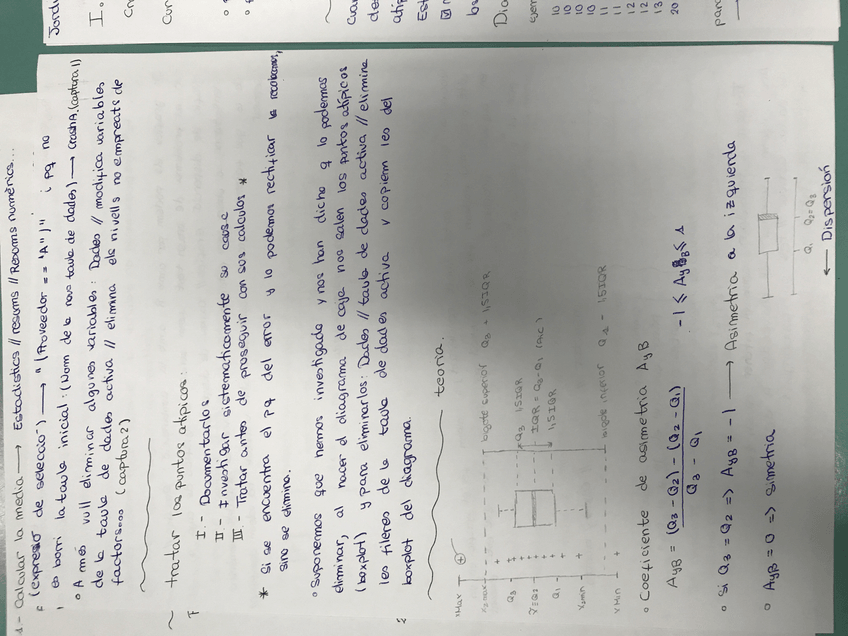 Calcular la media → Estadístics // resums // Resums numèrics...
(expressió de selecció) → " (Proveedor == "A") " i pq no
es borri la taula inicial: (Nom de la nova taula de dades) → CrashA. (captura 1)
• A més vull eliminar algunes variables: Dades // modifica variables
de la taula de dades activa // elimina els nivells no empreats de
factors... (captura 2)
~ tratar los puntos atípicos:
I - Documentarlos
II - Investigar sistematicamente su causa
III - Tratar antes de proseguir con sus calculos *
* Si se encuentra el pq del error y lo podemos rectificar
sino se elimina.
• Suponemos que hemos investigado y nos han dicho q lo podemos
eliminar, al hacer el diagrama de caja nos salen los puntos atípicos
(boxplot) y para eliminarlos: Dades // taula de dades activa // elimina
les fileres de la taula de dades activa y copiem les del
boxplot del diagrama.
teoria.
xMax
bigote superior Q3 + 1,5IQR
Q3
Q3 1,5IQR
x̃ = Q2
IQR = Q3 - Q1
Q1
1,5IQR
xMin
bigote inferior Q1 - 1,5IQR
• Coeficiente de asimetría AyB
AyB = (Q3 - Q2) - (Q2 - Q1) / Q3 - Q1
-1 ≤ AyB ≤ 1
• Si Q3 = Q2 => AyB = -1 → Asimetría a la izquierda
• AyB = 0 => simetría
Q1 Q2 = Q3
← Dispersión
I.
10
10
10
10
11
11
12
12
13
20